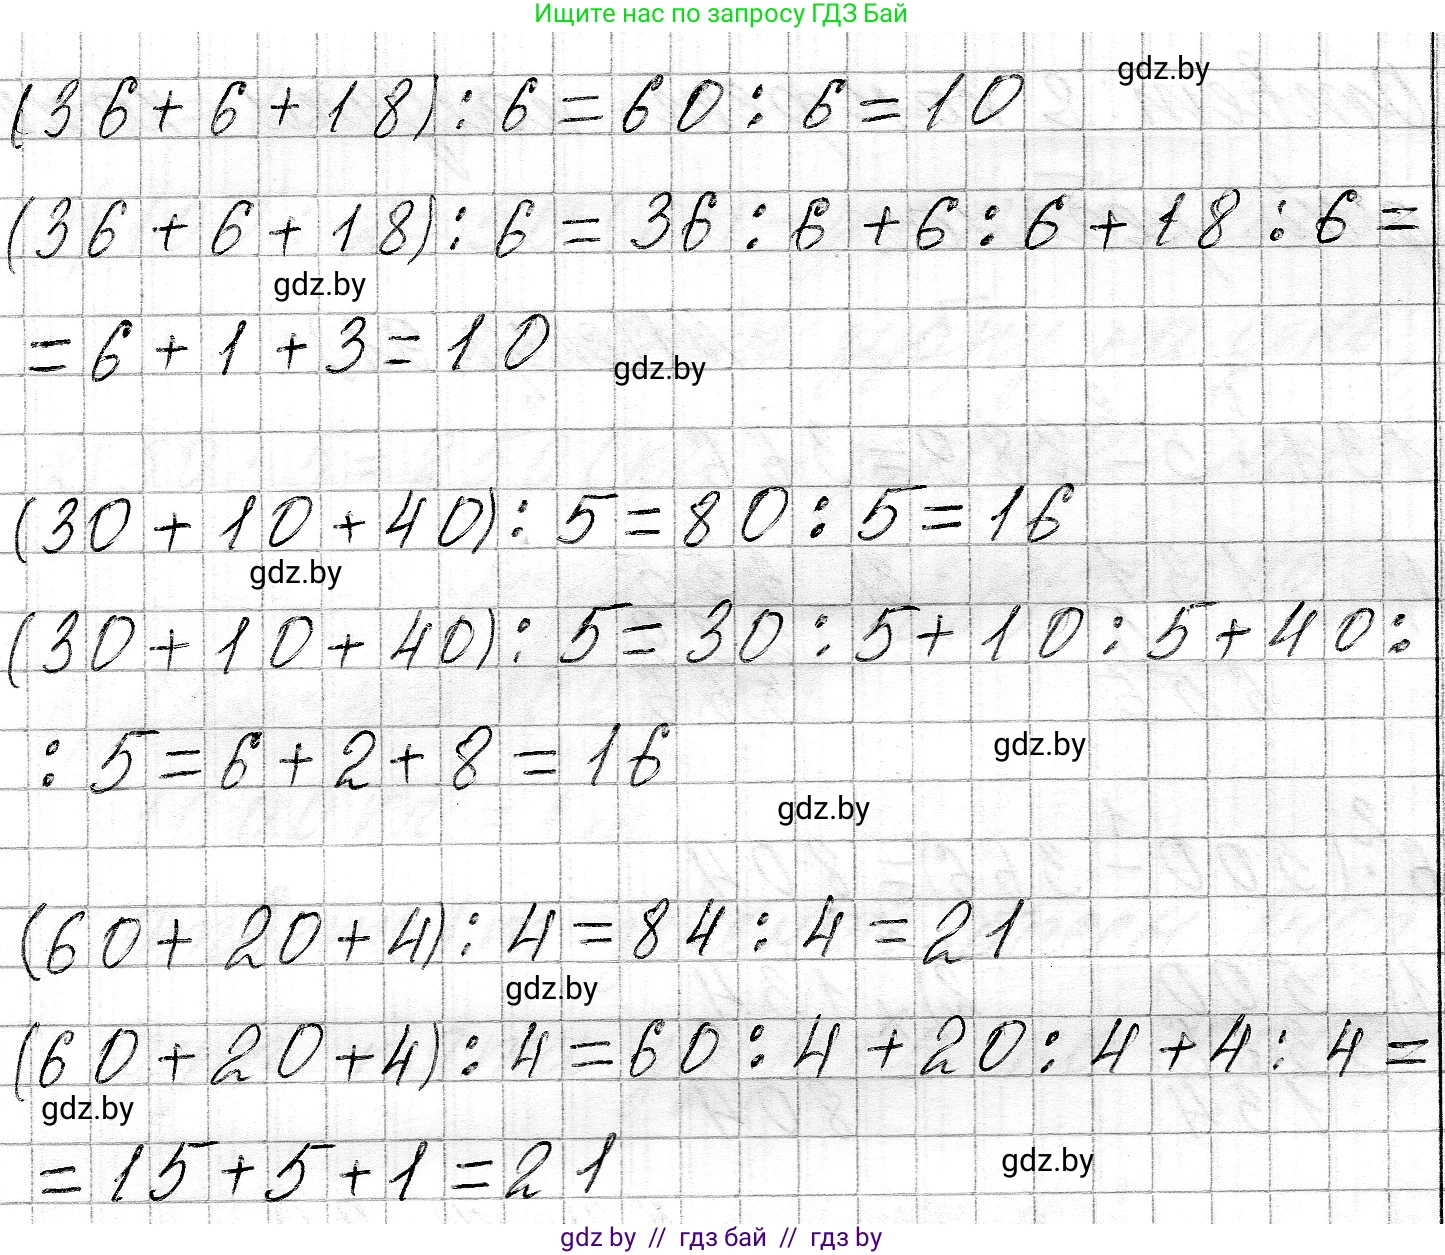 Ищите нас по запросу ГДЗ Бай
gdz.by
(36+6+18):6=60:6=10
(36+6+18):6=36:6+6:6+18:6=
gdz.by
=6+1+3=10
gdz.by
(30+10+40):5=80:5=16
gdz.by
(30+10+40):5=30:5+10:5+40:
:5=6+2+8=16
gdz.by
gdz.by
(60+20+4):4=84:4=21
gdz.by
(60+20+4):4=60:4+20:4+4:4=
gdz.by
=15+5+1=21
gdz.by
gdz by // гдз бай // гдз by